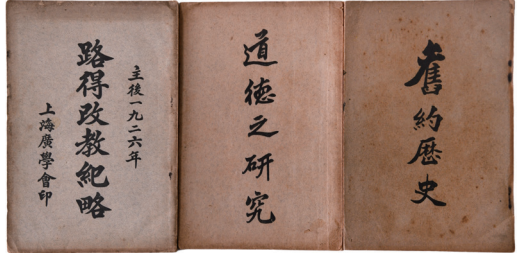 主後一九二六年
路得改教紀略
上海廣學會印
道德之研究
舊約歷史